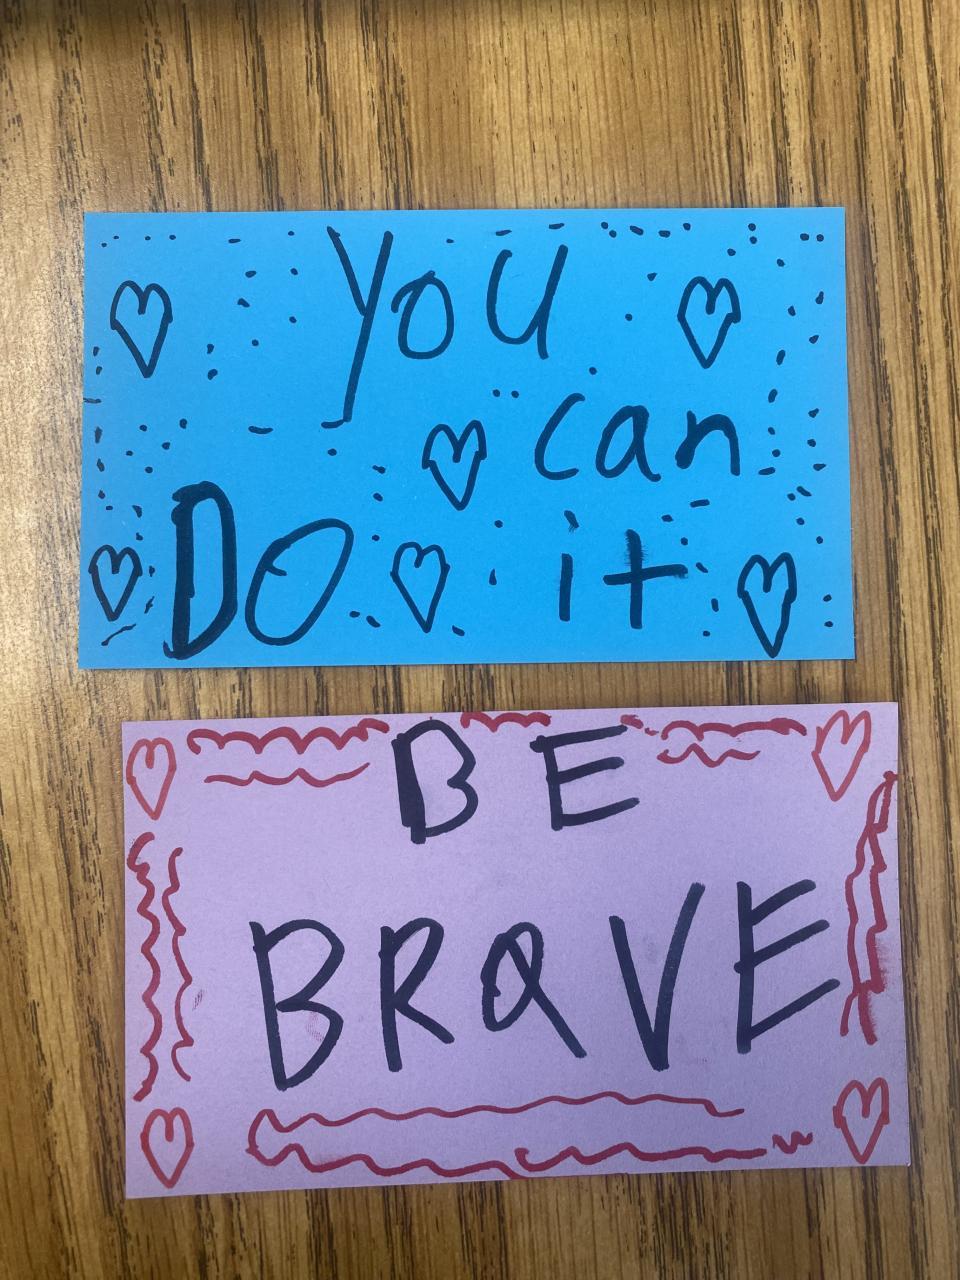 you
can
DO it
BE
BRAVE